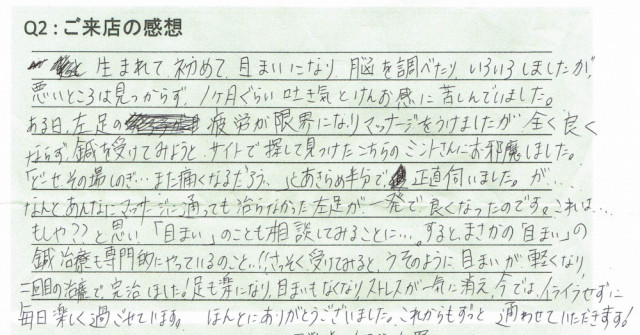 Q2:ご来店の感想
生まれて初めて、目まいになり、脳を調べたり、いろいろしましたが、
悪いところは見つからず、1ヶ月ぐらい吐き気とけんお感に苦しんでいました。
ある日、左足の疲労が限界になりマッサージをうけましたが全く良く
ならず、鍼を受けてみようと、サイトで探して見つけたこちらのミントさんにお邪魔しました。
「どーせその場しのぎ…また痛くなるだろう、」とあきらめ半分で正直伺いました。が…
なんとあんなにマッサージに通っても治らなかった左足が一発で良くなったのです。これは…
もしや??と思い「目まい」のことも相談してみることに…。すると、まさかの「目まい」の
鍼治療も専門的にやっているのこと..!!さっそく受けてみると、うそのように目まいが軽くなり、
二回目の治療で完治しました!足も楽になり、目まいもなくなり、ストレスが一気に消え、今では、イライラせずに
毎日楽しく過ごせています。 ほんとにありがとうございました。これからもずっと通わせていただきます!